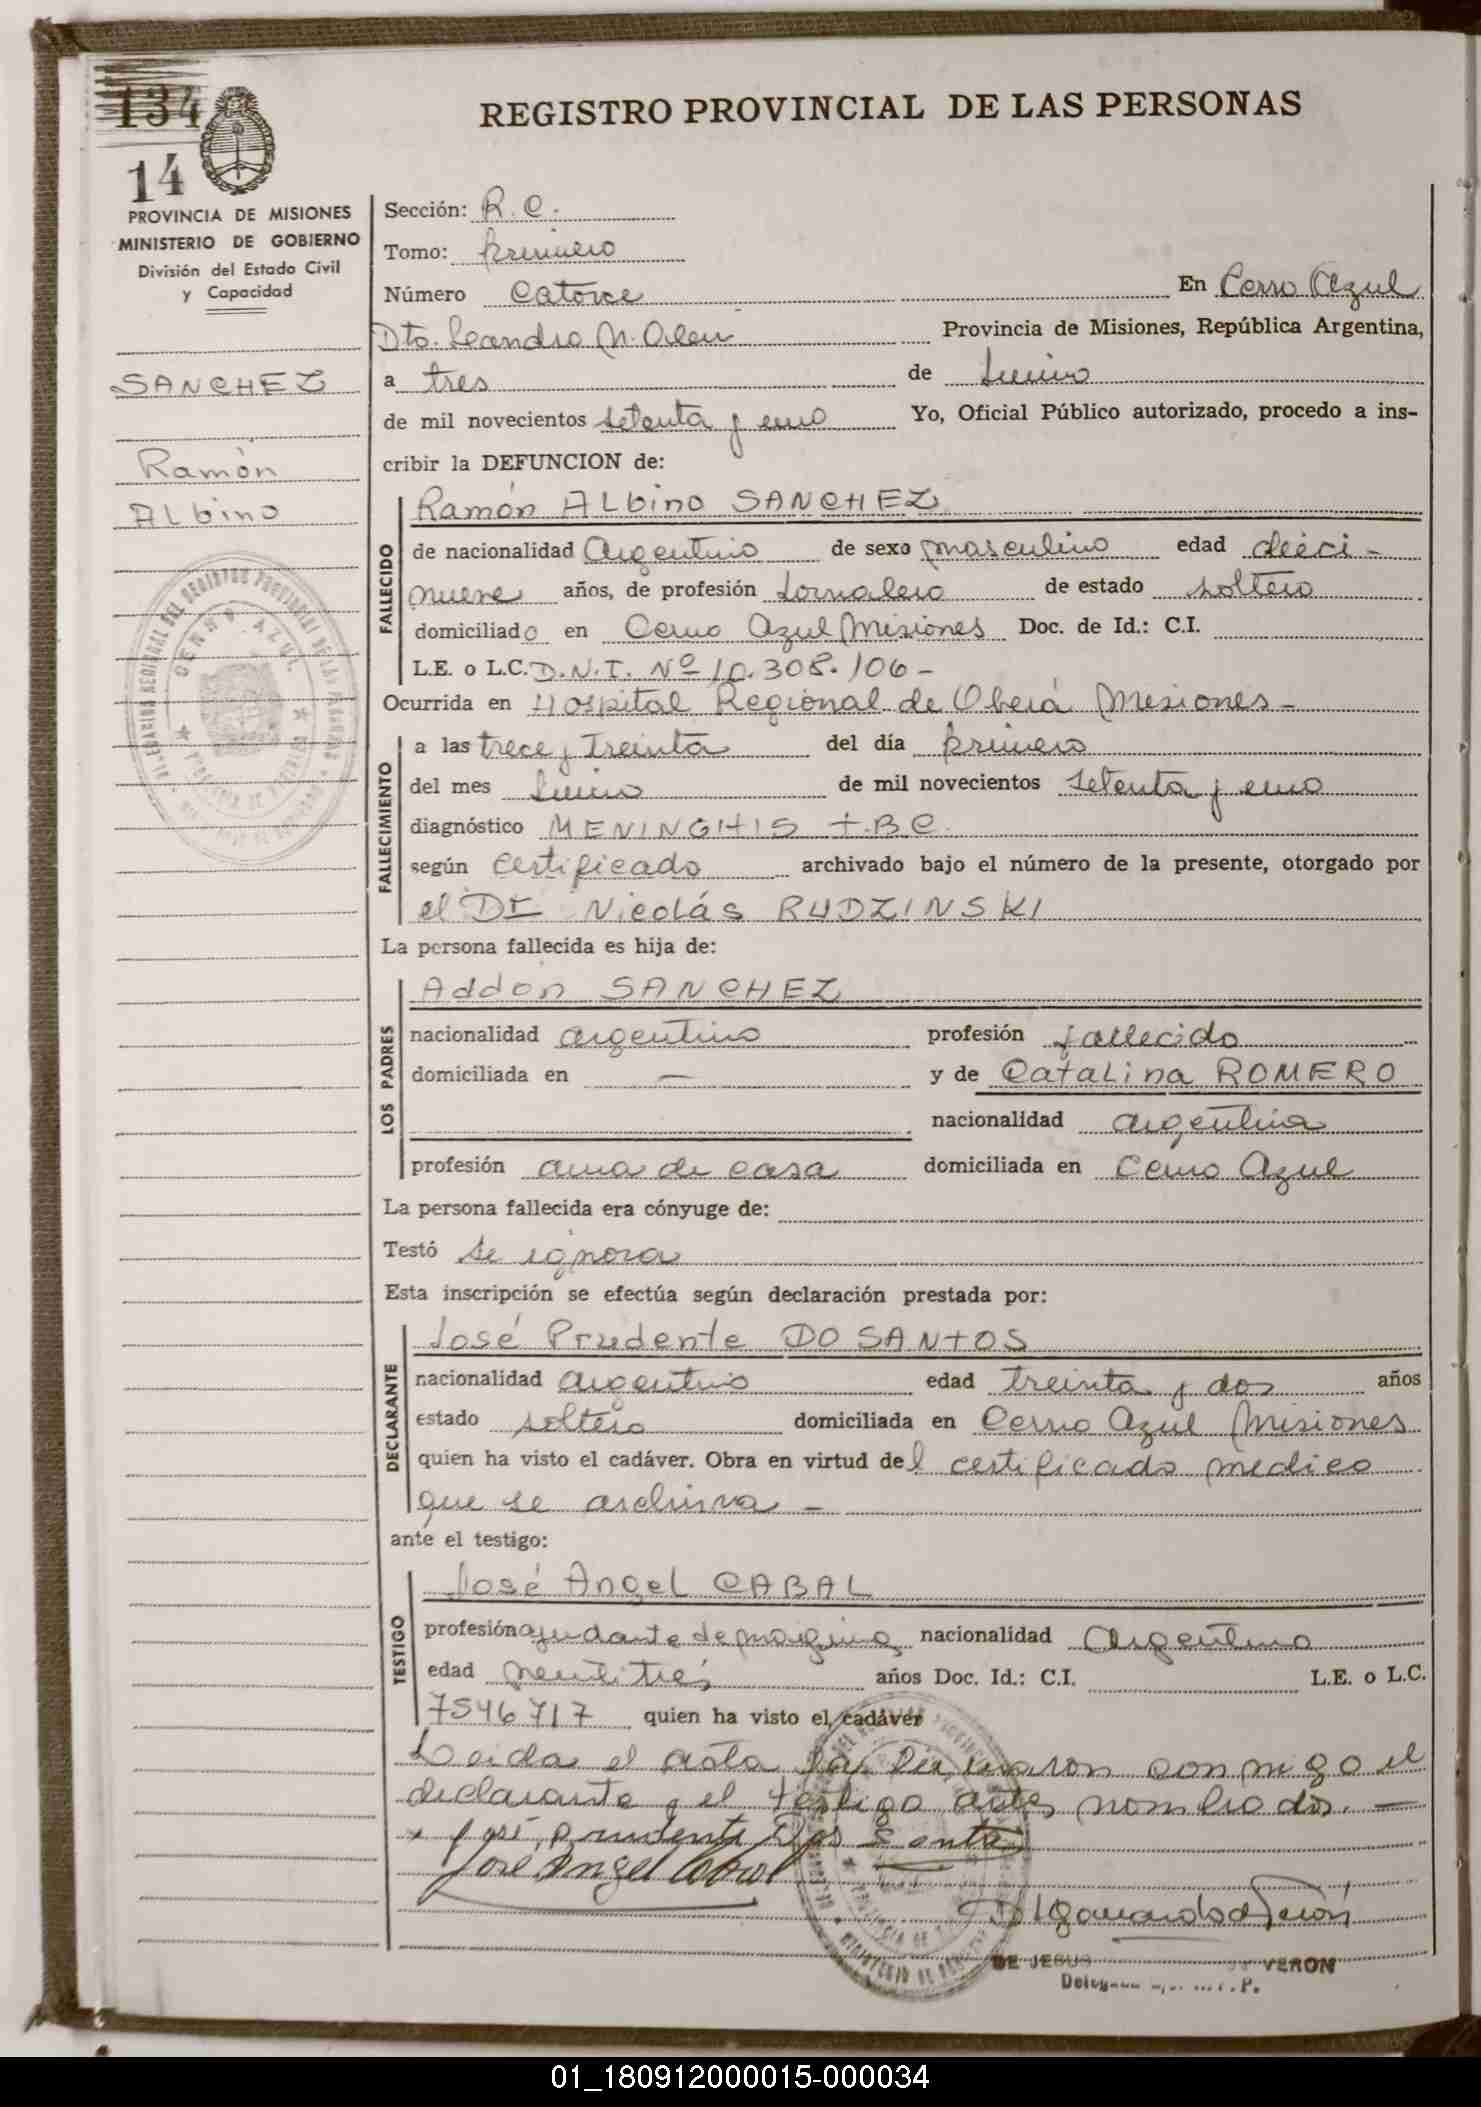 134
14
REGISTRO PROVINCIAL DE LAS PERSONAS
PROVINCIA DE MISIONES
MINISTERIO DE GOBIERNO
División del Estado Civil
y Capacidad
SANCHEZ
Ramón
Albino
Sección: R.C.
Tomo: Primero
Número Catorce En Cerro Azul
Dto. Leandro N. Alem Provincia de Misiones, República Argentina,
a tres de Junio
de mil novecientos setenta y uno Yo, Oficial Público autorizado, procedo a ins-
cribir la DEFUNCION de:
FALLECIDO
Ramón Albino SANCHEZ
de nacionalidad Argentino de sexo masculino edad dieci-
nueve años, de profesión Jornalero de estado soltero
domiciliado en Cerro Azul Misiones Doc. de Id.: C.I.
L.E. o L.C. D.N.I. Nº 10.308.106-
Ocurrida en Hospital Regional de Oberá Misiones-
FALLECIMIENTO
a las trece y Treinta del día primero
del mes Junio de mil novecientos setenta y uno
diagnóstico MENINGITIS T.B.C.
según Certificado archivado bajo el número de la presente, otorgado por
el Dr Nicolás RUDZINSKI
La persona fallecida es hija de:
LOS PADRES
Addon SANCHEZ
nacionalidad argentino profesión fallecido
domiciliada en — y de Catalina ROMERO
nacionalidad argentina
profesión ama de casa domiciliada en Cerro Azul
La persona fallecida era cónyuge de:
Testó se ignora
Esta inscripción se efectúa según declaración prestada por:
DECLARANTE
José Prudente DO SANTOS
nacionalidad argentino edad treinta y dos años
estado soltero domiciliada en Cerro Azul Misiones
quien ha visto el cadáver. Obra en virtud del certificado medico
que se archiva -
ante el testigo:
TESTIGO
José Angel CABAL
profesión ayudante de nacionalidad Argentino
edad años Doc. Id.: C.I. L.E. o L.C.
7546717 quien ha visto el cadáver
Leida el acta la firmaron conmigo el
declarante y el testigo antes nombrados. —
José Prudente Dos Santos
José Angel Cabal
DE JESUS VERON
01_180912000015-000034